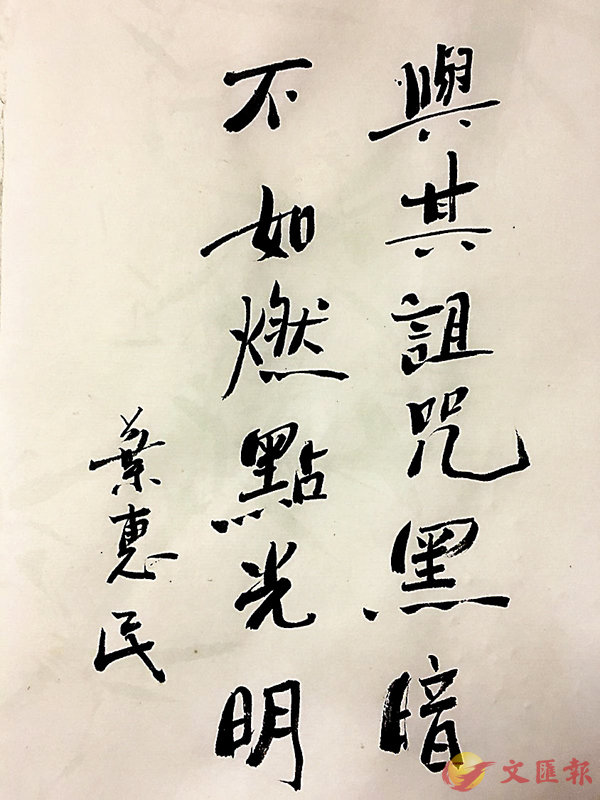 與其詛咒黑暗
不如燃點光明
葉惠民
文匯報